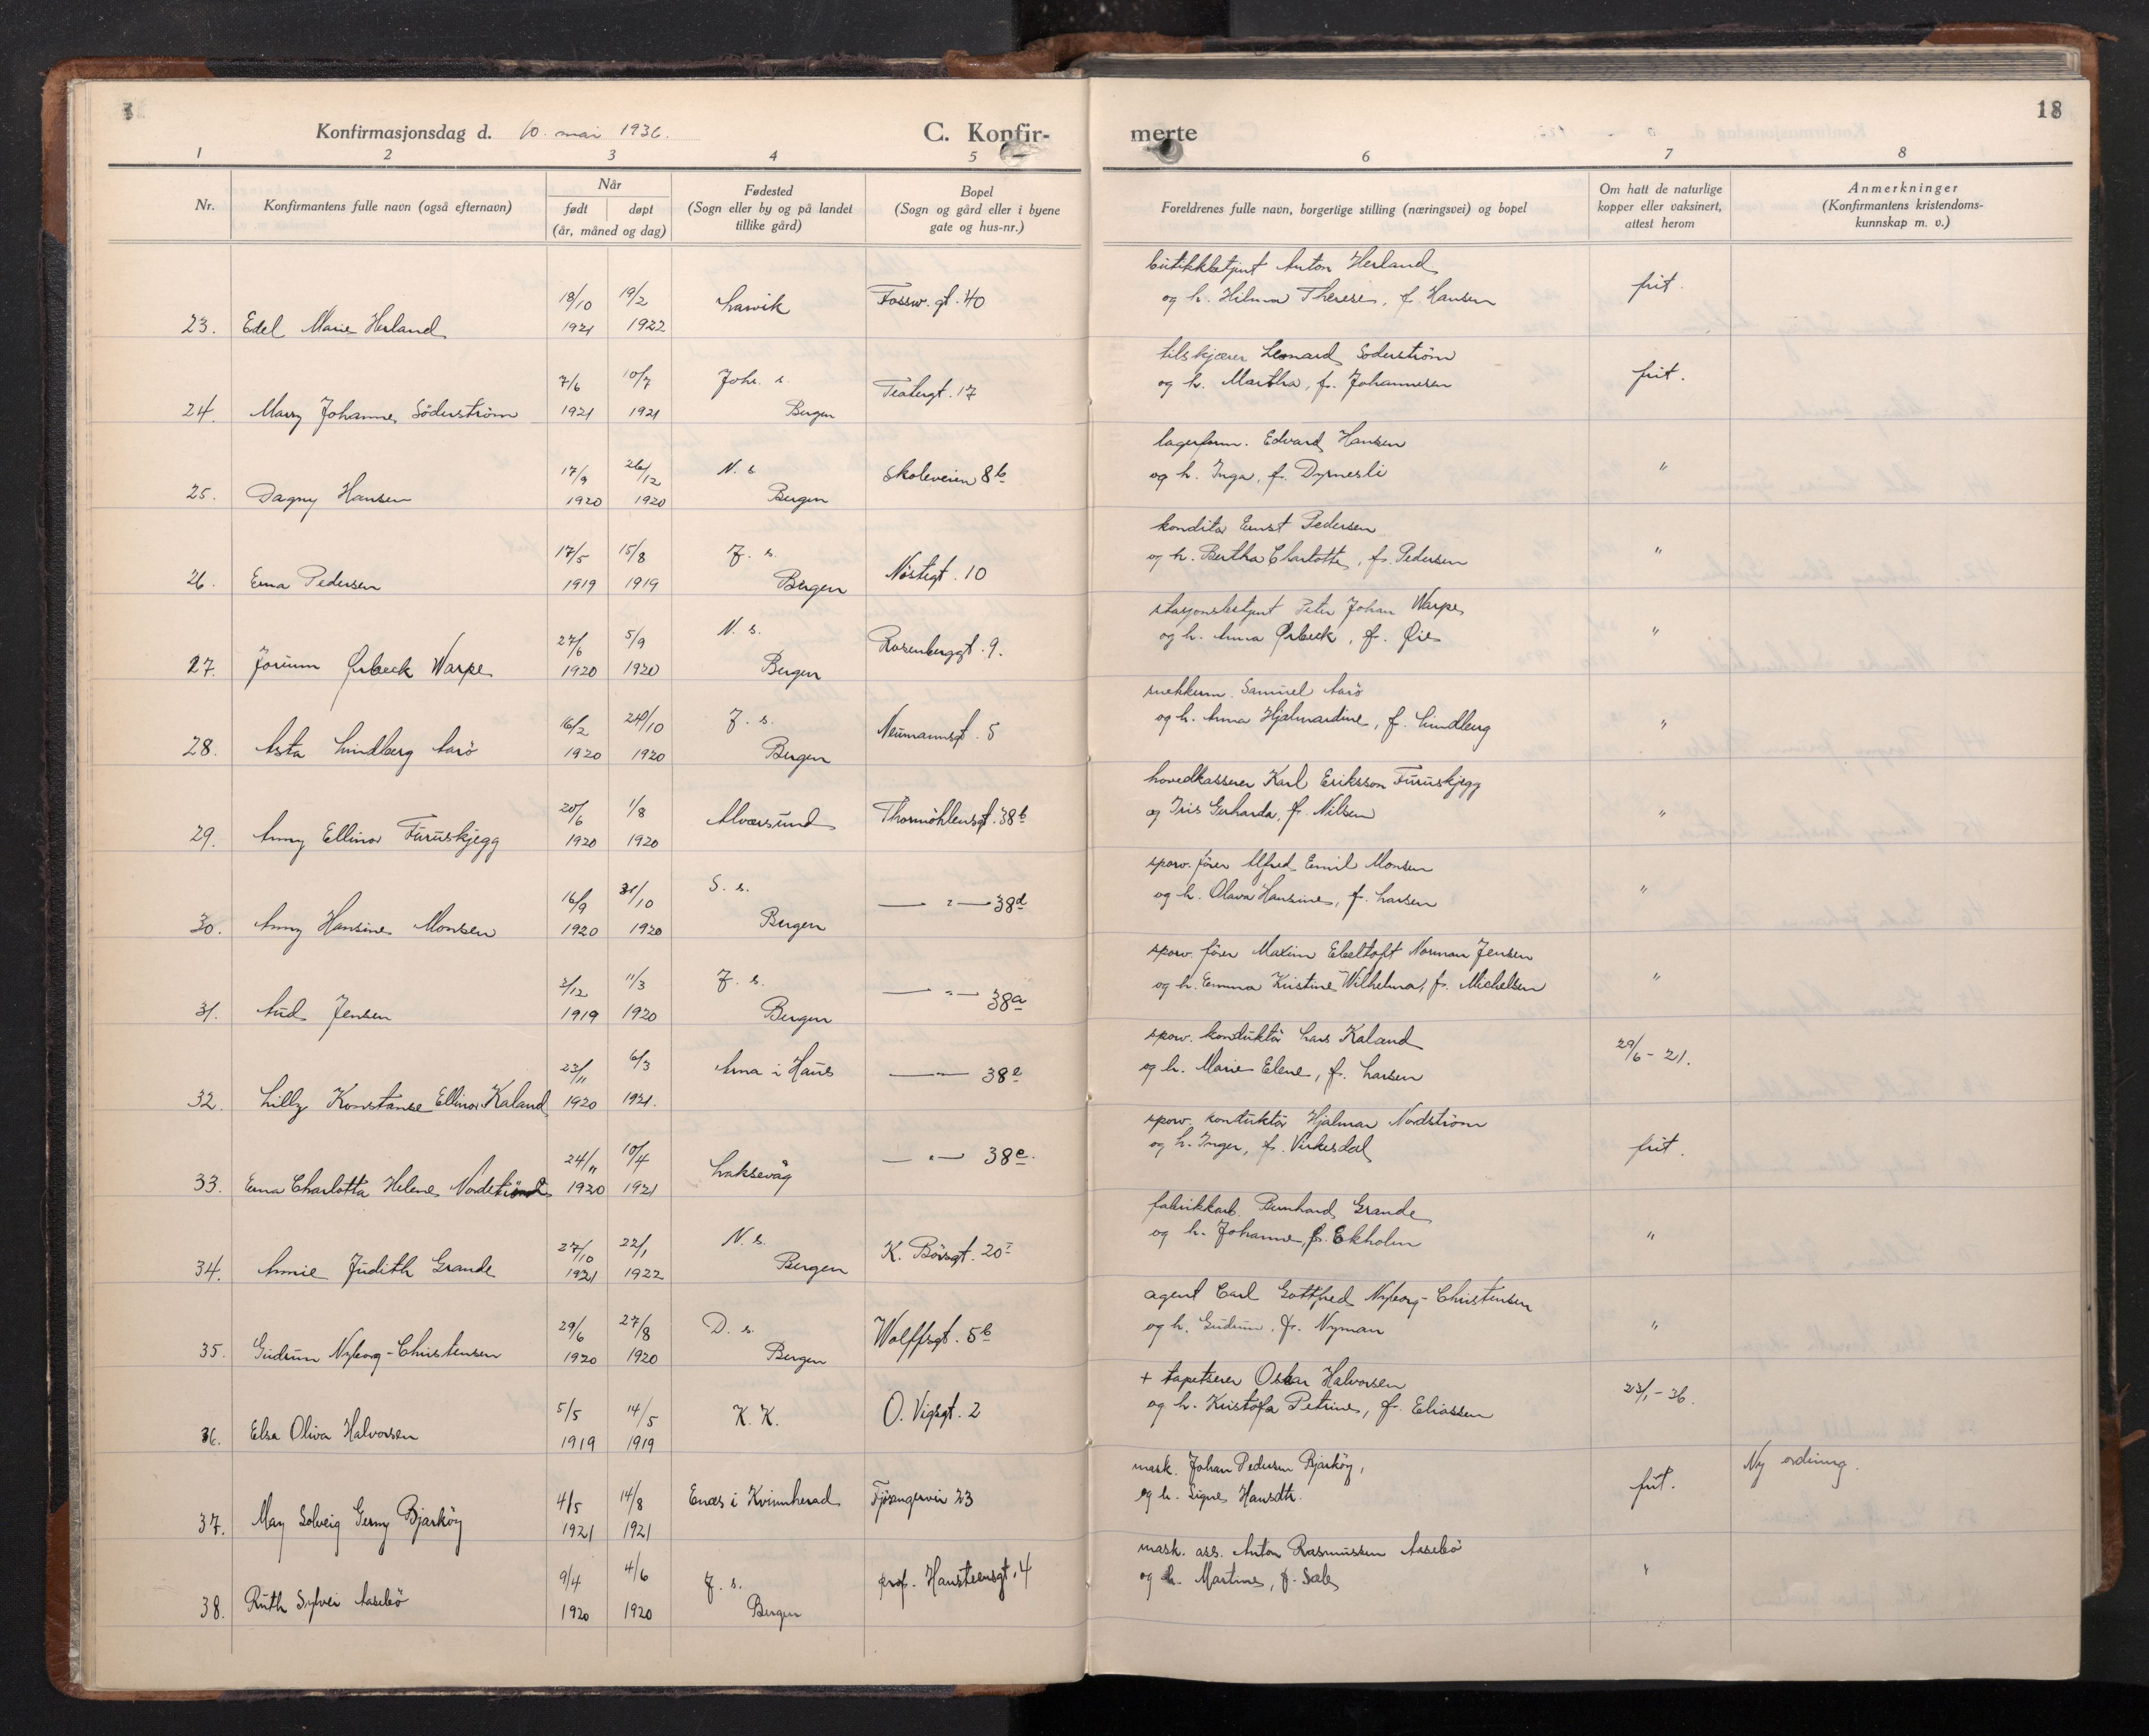 18
Konfirmasjonsdag d. 10. mai 1936.
C. Konfir-
merte
1 2 3 4 5 6 7 8
Nr.
Konfirmantens fulle navn (også efternavn)
Når
født døpt
(år, måned og dag)
Fødested
(Sogn eller by og på landet
tillike gård)
Bopel
(Sogn og gård eller i byene
gate og hus-nr.)
Foreldrenes fulle navn, borgerlige stilling (næringsvei) og bopel
Om hatt de naturlige
kopper eller vaksinert,
attest herom
Anmerkninger
(Konfirmantens kristendoms-
kunnskap m. v.)
butikkbetjent Anton Herland
18/10 19/2 Larvik Fossw. gt. 40 og h. Hilma Therese, f. Hansen frit.
23. Edel Marie Herland 1921 1922
tilskjærer Leonard Söderström
7/6 10/7 Joh. s. Teatergt. 17 og h. Martha, f. Johannesen frit.
24. Marry Johanne Söderström 1921 1921 Bergen
lagerform. Edvard Hansen
17/9 26/12 N. s. Skoleveien 8b og h. Inga, f. Dyrnesli "
25. Dagny Hansen 1920 1920 Bergen
konditor Ernst Pedersen
17/5 15/8 J. s. Nøstegt. 10 og h. Bertha Charlotte, f. Pedersen "
26. Erna Pedersen 1919 1919 Bergen
stasjonsbetjent Peter Johan Warpe
27/6 5/9 N. s. Rosenberggt. 9. og h. Anna Ørbeck, f. Øie "
27. Jorunn Ørbeck Warpe 1920 1920 Bergen
snekkerm. Samuel Aarö
16/2 24/10 J. s. Neumannsgt. 5 og h. Anna Hjalmardine, f. Lindberg "
28. Asta Lindberg Aarö 1920 1920 Bergen
hovedkasserer Karl Eriksson Furuskjegg
20/6 1/8 Alversund Thormöhlensgt. 38b og Iris Gerharda, f. Nilsen "
29. Anny Ellinor Furuskjegg 1920 1920
sporv. fører Alfred Emil Monsen
16/9 31/10 S. s. — " — 38d og h. Olava Hansine, f. Larsen "
30. Anny Hansine Monsen 1920 1920 Bergen
sporv. fører Maxim Ebeltoft Norman Jensen
2/12 11/3 J. s. — " — 38a og h. Emma Kristine Wilhelma, f. Michelsen "
31. Aud Jensen 1919 1920 Bergen
sporv. konduktör Lars Kaland
23/11 6/3 Arna i Haus — " — 38e og h. Marie Elene, f. Larsen 29/6 - 21.
32. Lilly Konstanse Ellinor Kaland 1920 1921.
sporv. konduktör Hjalmar Nordström
24/11 10/4 Laksevåg — " — 38e. og h. Inger, f. Virkesdal frit.
33. Erna Charlotta Helene Nordström 1920 1921
fabrikkarb. Bernhard Grande
27/10 22/1 N. s. K. Börsgt. 20I og h. Johanne, f. Ekholm "
34. Annie Judith Grande 1921 1922 Bergen
agent Carl Gottfred Nyborg-Christensen
29/6 27/8 D. s. Wolffsgt. 5b og h. Gudrun, f. Nyman "
35. Gudrun Nyborg-Christensen 1920 1920 Bergen
+ tapetserer Oskar Halvorsen
5/5 14/5 K. K. O. Vigsgt. 2 og h. Kristofa Petrine, f. Eliassen 23/1 - 36.
36. Elsa Oliva Halvorsen 1919 1919
mask. Johan Pedersen Bjarköy,
4/5 14/8 Enæs i Kvinnherad Fjösangervei 23 og h. Signe Hansdtr. frit. Ny ordning.
37. May Solveig Germy Bjarköy 1921 1921
mask. ass. Anton Rasmussen Aasebö
9/4 4/6 J. s. prof. Hansteensgt. 4 og h. Martine, f. Sale "
38. Ruth Sylvei Aasebö 1920 1920 Bergen